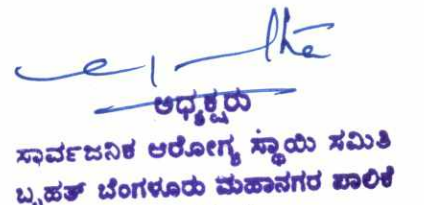 ಅಧ್ಯಕ್ಷರು
ಸಾರ್ವಜನಿಕ ಆರೋಗ್ಯ ಸ್ಥಾಯಿ ಸಮಿತಿ
ಬೃಹತ್ ಬೆಂಗಳೂರು ಮಹಾನಗರ ಪಾಲಿಕೆ